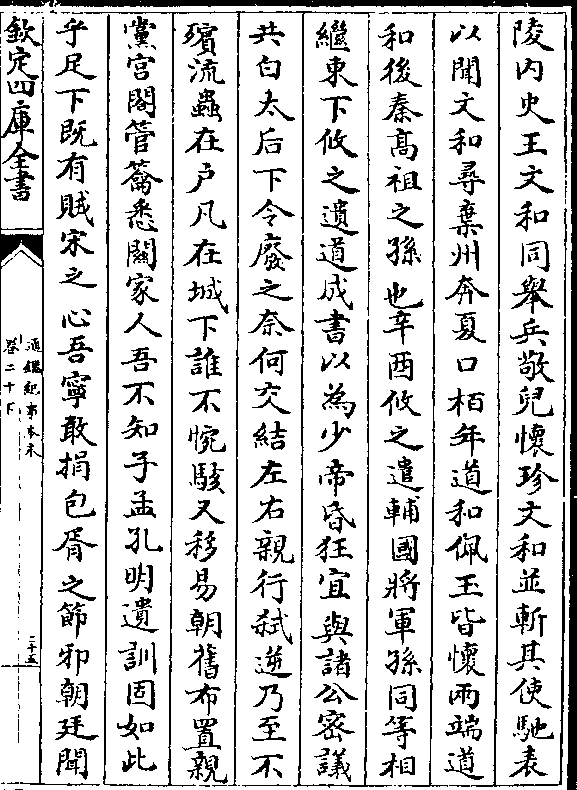 陵内史王文和同舉兵敬兒懷珍文和並斬其使馳表
以聞文和尋棄州奔夏口栢年道和佩玉皆懷兩端道
和後秦髙祖之孫也辛酉攸之遣輔國將軍孫同等相
繼東下攸之遺道成書以為少帝昏狂宜與諸公密議
共白太后下令廢之奈何交結左右親行弑逆乃至不
殯流蟲在户凡在城下誰不惋駭又移易朝舊布置親
黨宫閣管籥悉關家人吾不知子孟孔明遺訓固如此
乎足下既有賊宋之心吾寧敢捐包胥之節邪朝廷聞
欽定四庫全書
通鑑紀事本末
卷二十下
二十五